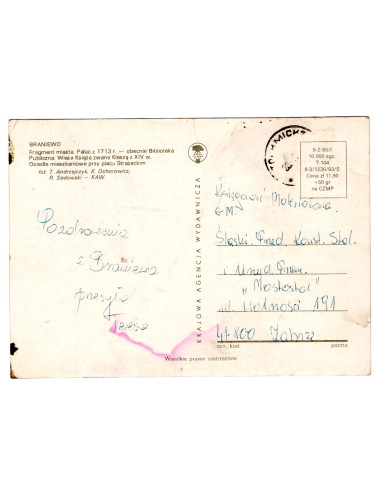 BRANIEWO
Fragment miasta. Pałac z 1713 r. — obecnie Biblioteka
Publiczna. Wieża Księża zwana Kleszą z XIV w.
Osiedle mieszkaniowe przy placu Strażackim
fot. T. Andrzejczyk, K. Ochorowicz,
R. Sadowski — KAW
II-Z-85/I
10 000 egz.
T-104
II-3/1236/83/S
Cena zł 11,50
+50 gr
na CZMP
KRAJOWA AGENCJA WYDAWNICZA
Pozdrowienia
z Braniewa
przesyła
Teresa
Księgowość-Materiałowa
GM
Śląski Przed. Konst. Stal.
i Urząd. Przem.
„Mostostal"
ul. Wolności 191
41-800 Zabrze
kod
poczta
Wszelkie prawa zastrzeżone